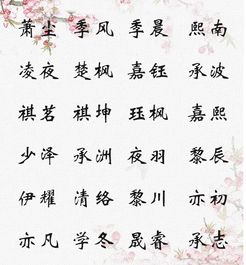 萧尘 季风 季晨 熙南
凌夜 楚枫 嘉钰 承波
祺茗 祺坤 珏枫 嘉熙
少泽 承洲 夜羽 黎辰
伊耀 清络 黎川 亦初
亦凡 学冬 晟睿 承志